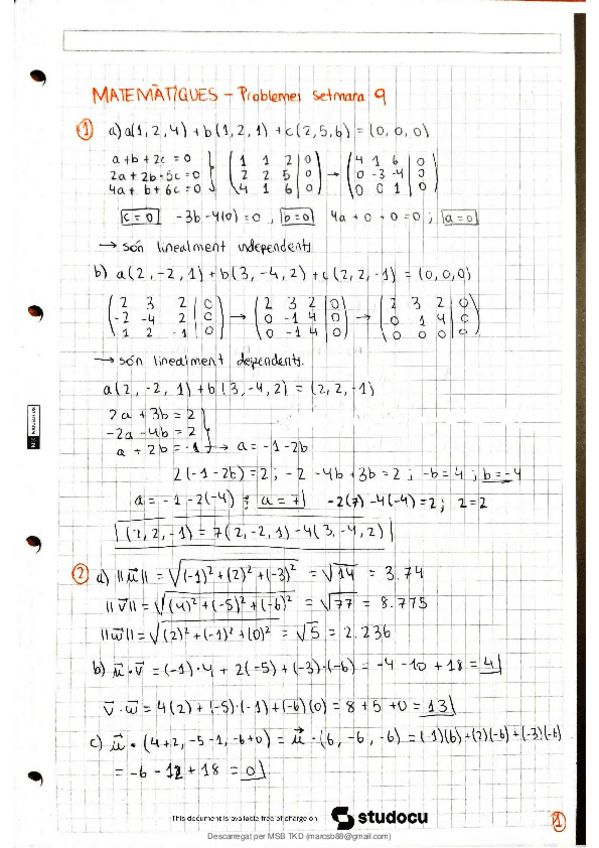 MATEMÀTIQUES - Problemes setmana 9
① a) a(1,2,4) + b(1,2,1) + c(2,5,6) = (0,0,0)
a + b + 2c = 0
2a + 2b + 5c = 0
4a + b + 6c = 0
( 1 1 2 | 0 ) → ( 4 1 6 | 0 )
( 2 2 5 | 0 ) ( 0 -3 -4 | 0 )
( 4 1 6 | 0 ) ( 0 0 1 | 0 )
c = 0 -3b - 4(0) = 0 , b = 0 4a + 0 + 0 = 0 ; a = 0
→ són linealment independents
b) a(2,-2,1) + b(3,-4,2) + c(2,2,-1) = (0,0,0)
( 2 3 2 | 0 ) → ( 2 3 2 | 0 ) → ( 2 3 2 | 0 )
( -2 -4 2 | 0 ) ( 0 -1 4 | 0 ) ( 0 1 4 | 0 )
( 1 2 -1 | 0 ) ( 0 -1 4 | 0 ) ( 0 0 0 | 0 )
→ són linealment dependents.
a(2,-2,1) + b(3,-4,2) = (2,2,-1)
2a + 3b = 2
-2a - 4b = 2
a + 2b = -1 → a = -1 - 2b
2(-1-2b) = 2 ; -2 -4b + 3b = 2 ; -b = 4 ; b = -4
a = -1 - 2(-4) ; a = 7 -2(7) - 4(-4) = 2 ; 2 = 2
(2,2,-1) = 7(2,-2,1) - 4(3,-4,2)
② a) ||u⃗|| = √((-1)² + (2)² + (-3)²) = √14 = 3.74
||v⃗|| = √((4)² + (-5)² + (-6)²) = √77 = 8.775
||w⃗|| = √((2)² + (-1)² + (0)²) = √5 = 2.236
b) u⃗ · v⃗ = (-1)·4 + 2(-5) + (-3)·(-6) = -4 - 10 + 18 = 4
v⃗ · w⃗ = 4(2) + (-5)·(-1) + (-6)(0) = 8 + 5 + 0 = 13
c) u⃗ · (4+2, -5-1, -6+0) = u⃗ · (6, -6, -6) = (-1)(6) + (2)(-6) + (-3)(-6)
= -6 - 12 + 18 = 0
This document is available free of charge on studocu
1
Descarregat per MSB TKD (marcsb88@gmail.com)